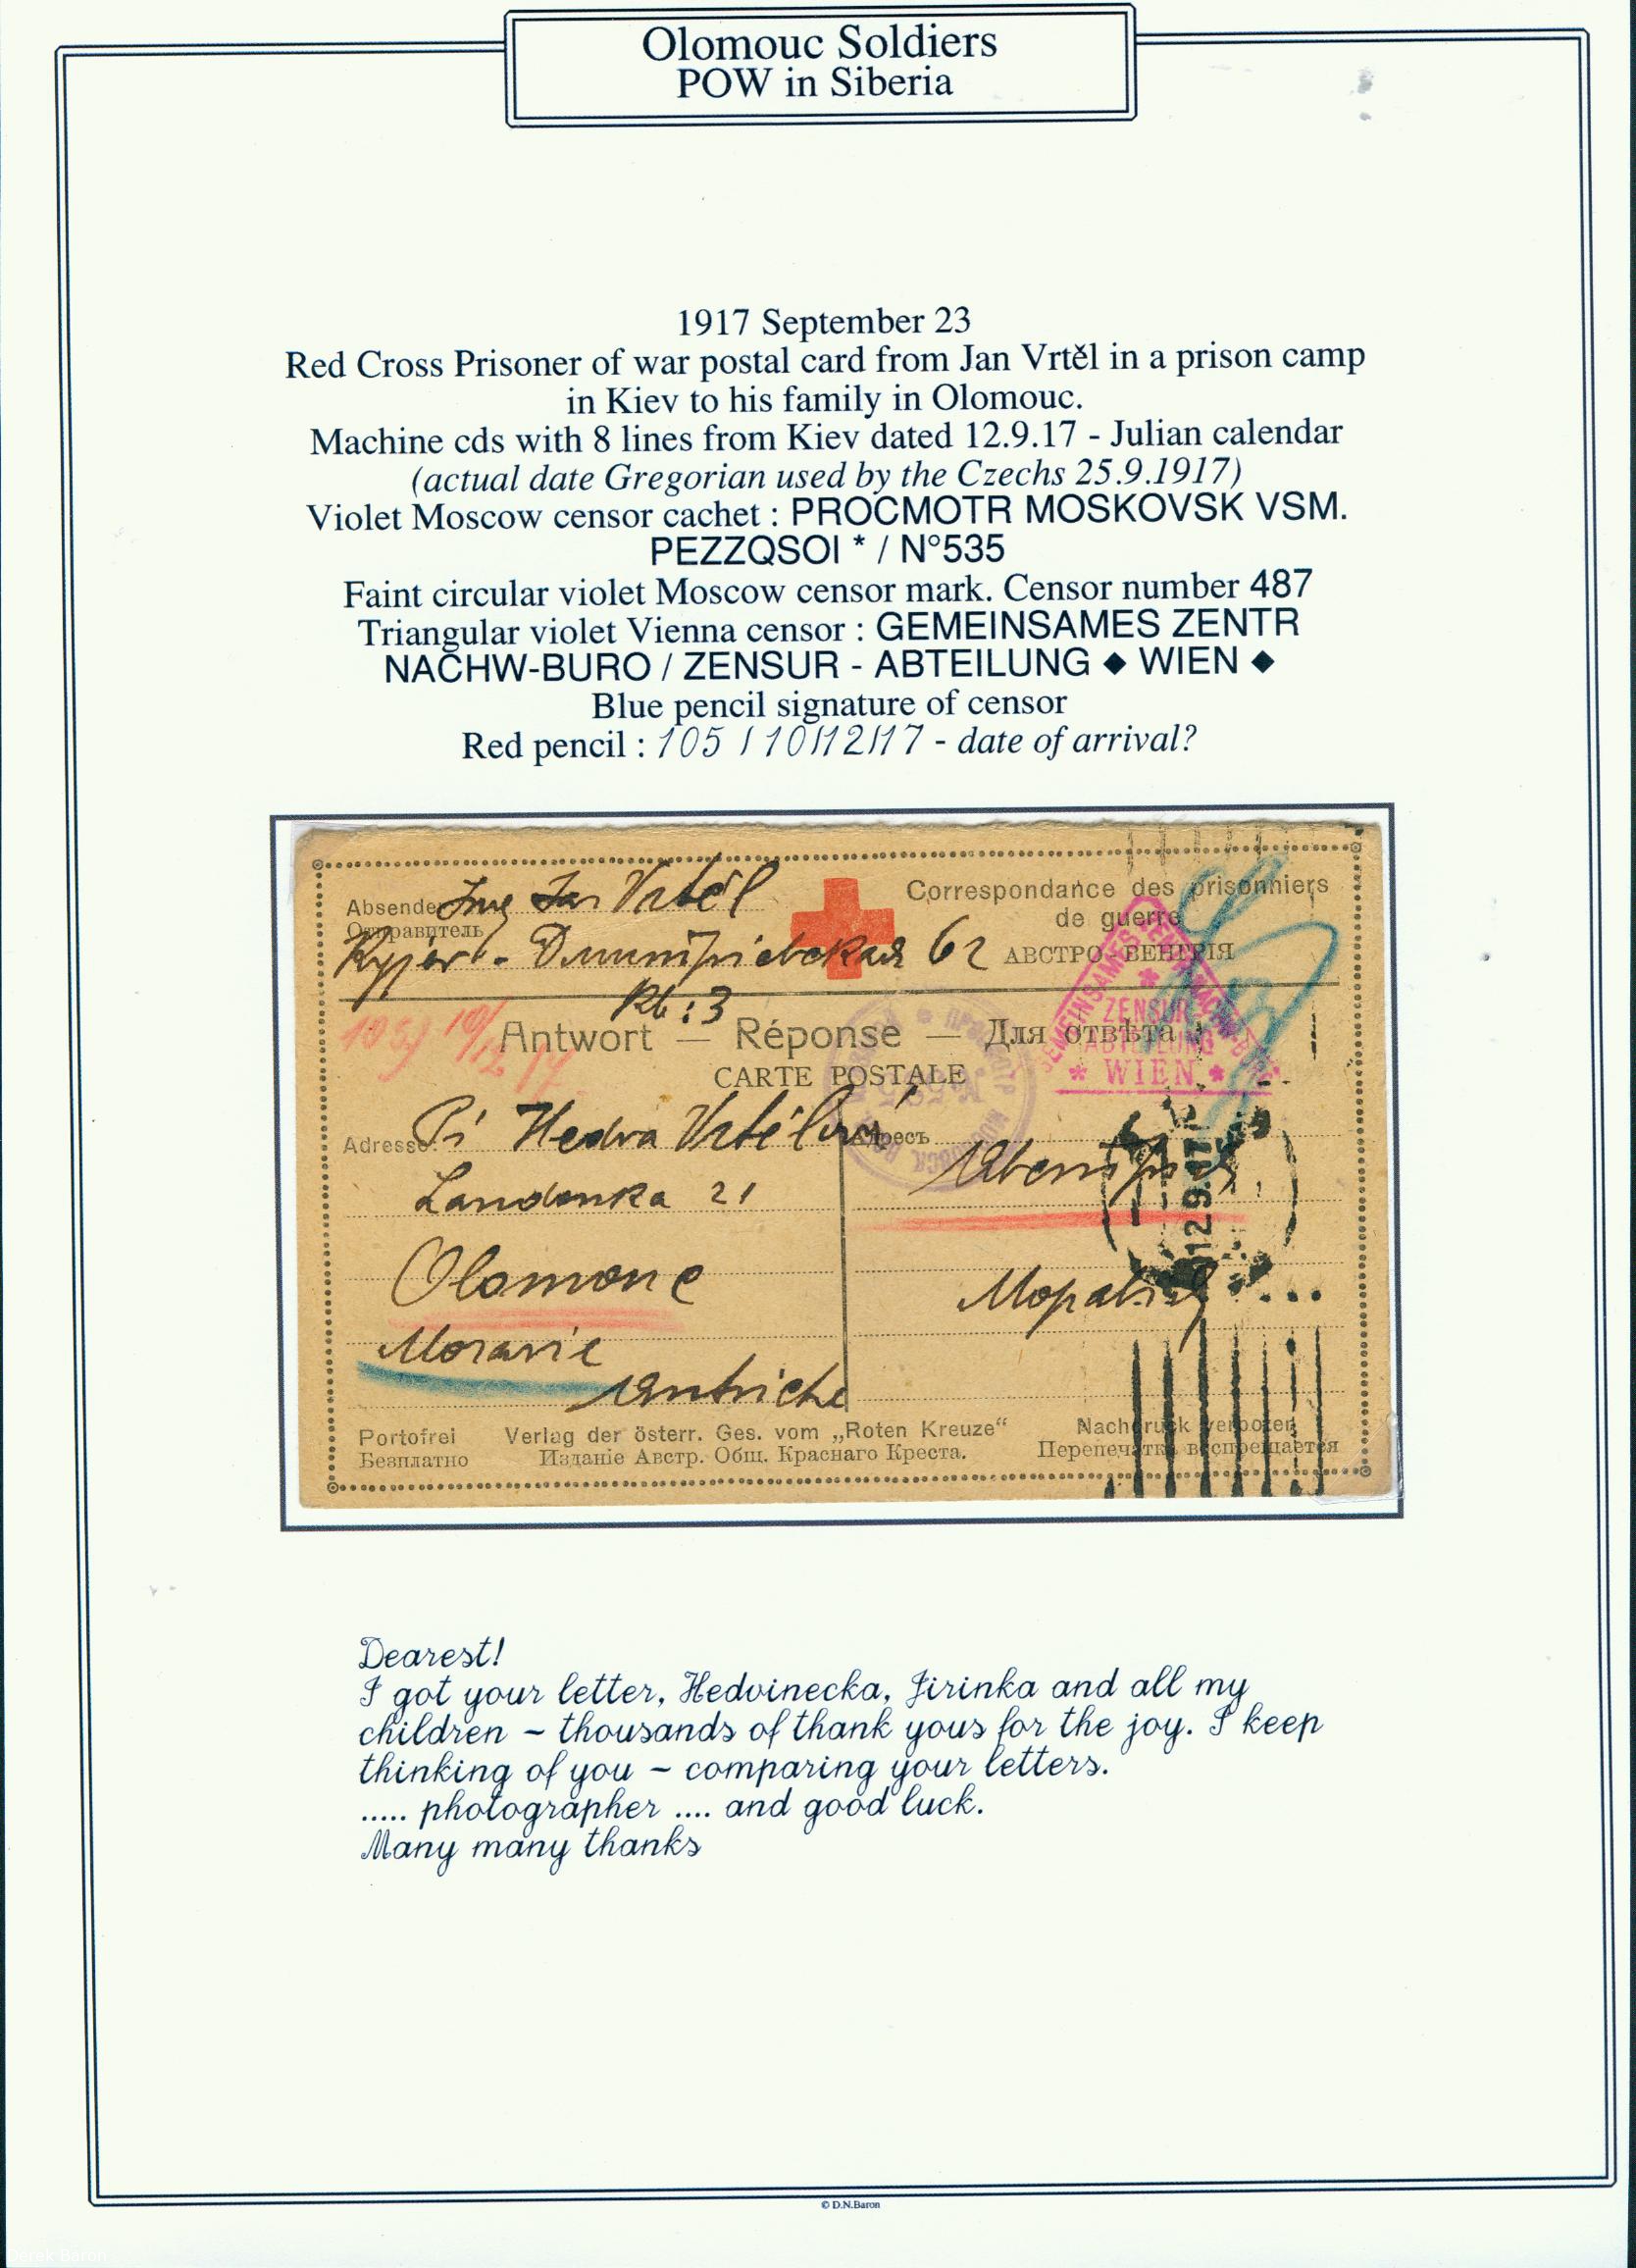 Olomouc Soldiers
POW in Siberia
1917 September 23
Red Cross Prisoner of war postal card from Jan Vrtěl in a prison camp
in Kiev to his family in Olomouc.
Machine cds with 8 lines from Kiev dated 12.9.17 - Julian calendar
(actual date Gregorian used by the Czechs 25.9.1917)
Violet Moscow censor cachet : PROCMOTR MOSKOVSK VSM.
PEZZQSOI * / N°535
Faint circular violet Moscow censor mark. Censor number 487
Triangular violet Vienna censor : GEMEINSAMES ZENTR
NACHW-BURO / ZENSUR - ABTEILUNG ◆ WIEN ◆
Blue pencil signature of censor
Red pencil : 105 / 10/12/17 - date of arrival?
Absender Ing Jan Vrtěl
Отправитель
Correspondance des prisonniers
de guerre
Kyjev - Дмитріевская 62
АВСТРО-ВЕНГРІЯ
105/ 10/12 17
Antwort — Réponse — Для отвѣта
CARTE POSTALE
GEMEINSAMES ZENTR. NACHW.-BURO
ZENSUR
ABTEILUNG
* WIEN *
Adresse: Pí Hedva Vrtělová
Адресъ
Landonka 21
12.9.17
Olomouc
Моравія
Moravie
Autriche
Portofrei Verlag der österr. Ges. vom „Roten Kreuze“ Nachdruck verboten
Безплатно Изданіе Австр. Общ. Краснаго Креста. Перепечатка воспрещается
Dearest!
I got your letter, Hedvinecka, Jirinka and all my
children ~ thousands of thank yous for the joy. I keep
thinking of you ~ comparing your letters.
..... photographer .... and good luck.
Many many thanks
© D.N.Baron
Derak Baron